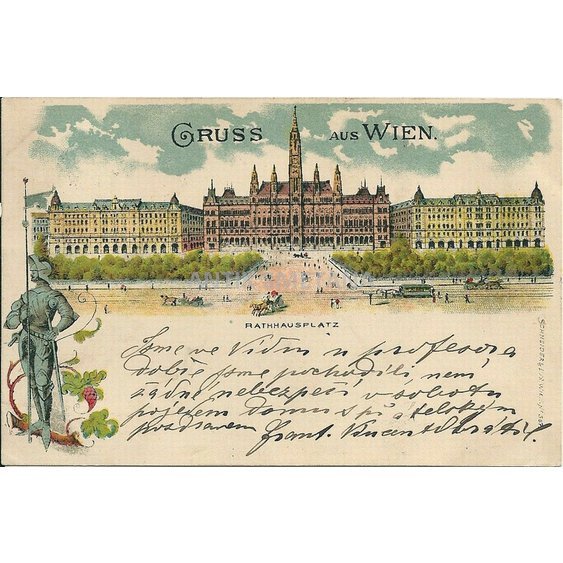 GRUSS AUS WIEN.
RATHHAUSPLATZ
Jsme ve Vídni u profesora
dobře jsme pochodili není
žádné nebezpečí v sobotu
pojedem domu s
pozdravem Frant.